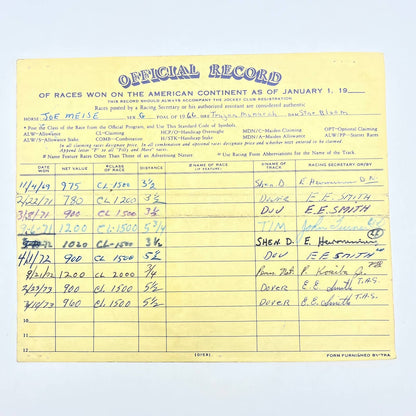 OFFICIAL RECORD
OF RACES WON ON THE AMERICAN CONTINENT AS OF JANUARY 1, 19
THIS RECORD SHOULD ALWAYS ACCOMPANY THE JOCKEY CLUB REGISTRATION
Races posted by a Racing Secretary or his authorized assistant are considered authentic
HORSE JOE MEISE SEX G FOAL OF 1966 SIRE Trojan Monarch DAM Star Bloom
* Post the Class of the Race from the Official Program, and Use This Standard Code of Symbols.
ALW-Allowance CL-Claiming HCP/O-Handicap Overnight MDN/C-Maiden Claiming OPT-Optional Claiming
ALW/S-Allowance Stake COMB-Combination H/STK-Handicap Stake MDN/A-Maiden Allowance ALW/PP-Starter Races
In all claiming races designate price. In all combination and optional races designate price and whether entered to be claimed or not.
Append letter "F" to all "Filly and Mare" races.
# Name Feature Races Other Than Those of an Advertising Nature * Use Racing Form Abbreviations for the Name of the Track.
DATE WON NET VALUE *CLASS OF RACE DISTANCE # NAME OF RACE (IF FEATURE) *NAME OF TRACK RACING SECRETARY OR/BY
1 11/4/69 975 CL-1500 5½ Shen D.
2 2/22/71 780 CL 1200 3½ DOVER E E SMITH
3 900 CL 1500 3½ DOV E.E. SMITH
4 1200 CL 1500 5 3/4 TIM
5 1020 CL-1500 3½ SHEN D.
6 4/11/72 900 CL 1500 DOV E E SMITH
7 1200 CL 2000 3/4 Penn Nat.
8 2/23/73 900 CL 1500 5½ DOVER E.E. Smith T.A.S.
9 960 CL 1500 5½ DOVER E.E. Smith T.A.S.
10
11
12
FORM FURNISHED BY